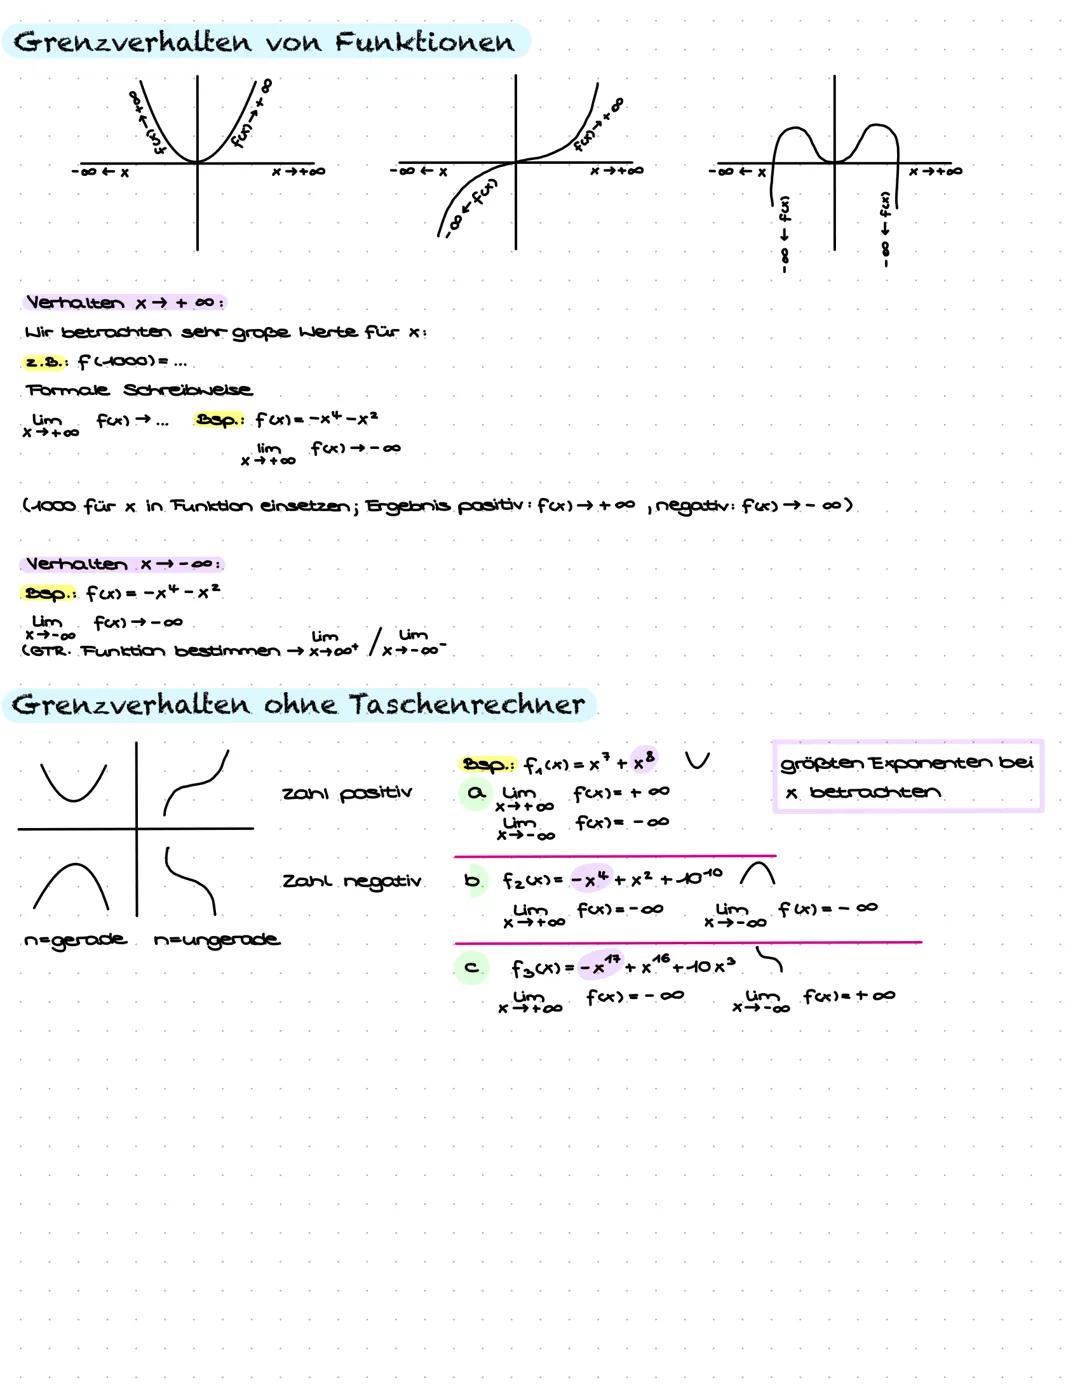 Grenzverhalten von Funktionen
f(x) → +∞
f(x) → +∞
-∞ ← x
x → +∞
f(x) → +∞
-∞ ← x
x → +∞
-∞ ← f(x)
-∞ ← x
x → +∞
-∞ ← f(x)
-∞ ← f(x)
Verhalten x → + ∞:
Wir betrachten sehr große Werte für x:
z.B.: f(1000) = ...
Formale Schreibweise
Lim x→+∞ f(x) → ... Bsp.: f(x) = -x⁴ - x²
lim x→+∞ f(x) → -∞
(1000 für x in Funktion einsetzen; Ergebnis positiv: f(x) → +∞, negativ: f(x) → -∞)
Verhalten x → -∞:
Bsp.: f(x) = -x⁴ - x²
Lim x→-∞ f(x) → -∞
(GTR. Funktion bestimmen → Lim x→∞⁺ / Lim x→-∞⁻
Grenzverhalten ohne Taschenrechner
zahl positiv
Zahl negativ
n=gerade n=ungerade
Bsp.: f₁(x) = x⁷ + x⁸
a Lim x→+∞ f(x) = + ∞
Lim x→-∞ f(x) = -∞
größten Exponenten bei
x betrachten
b f₂(x) = -x⁴ + x² + 10¹⁰
Lim x→+∞ f(x) = -∞ Lim x→-∞ f(x) = -∞
c f₃(x) = -x¹⁷ + x¹⁶ + 10x³
Lim x→+∞ f(x) = -∞ Lim x→-∞ f(x) = +∞